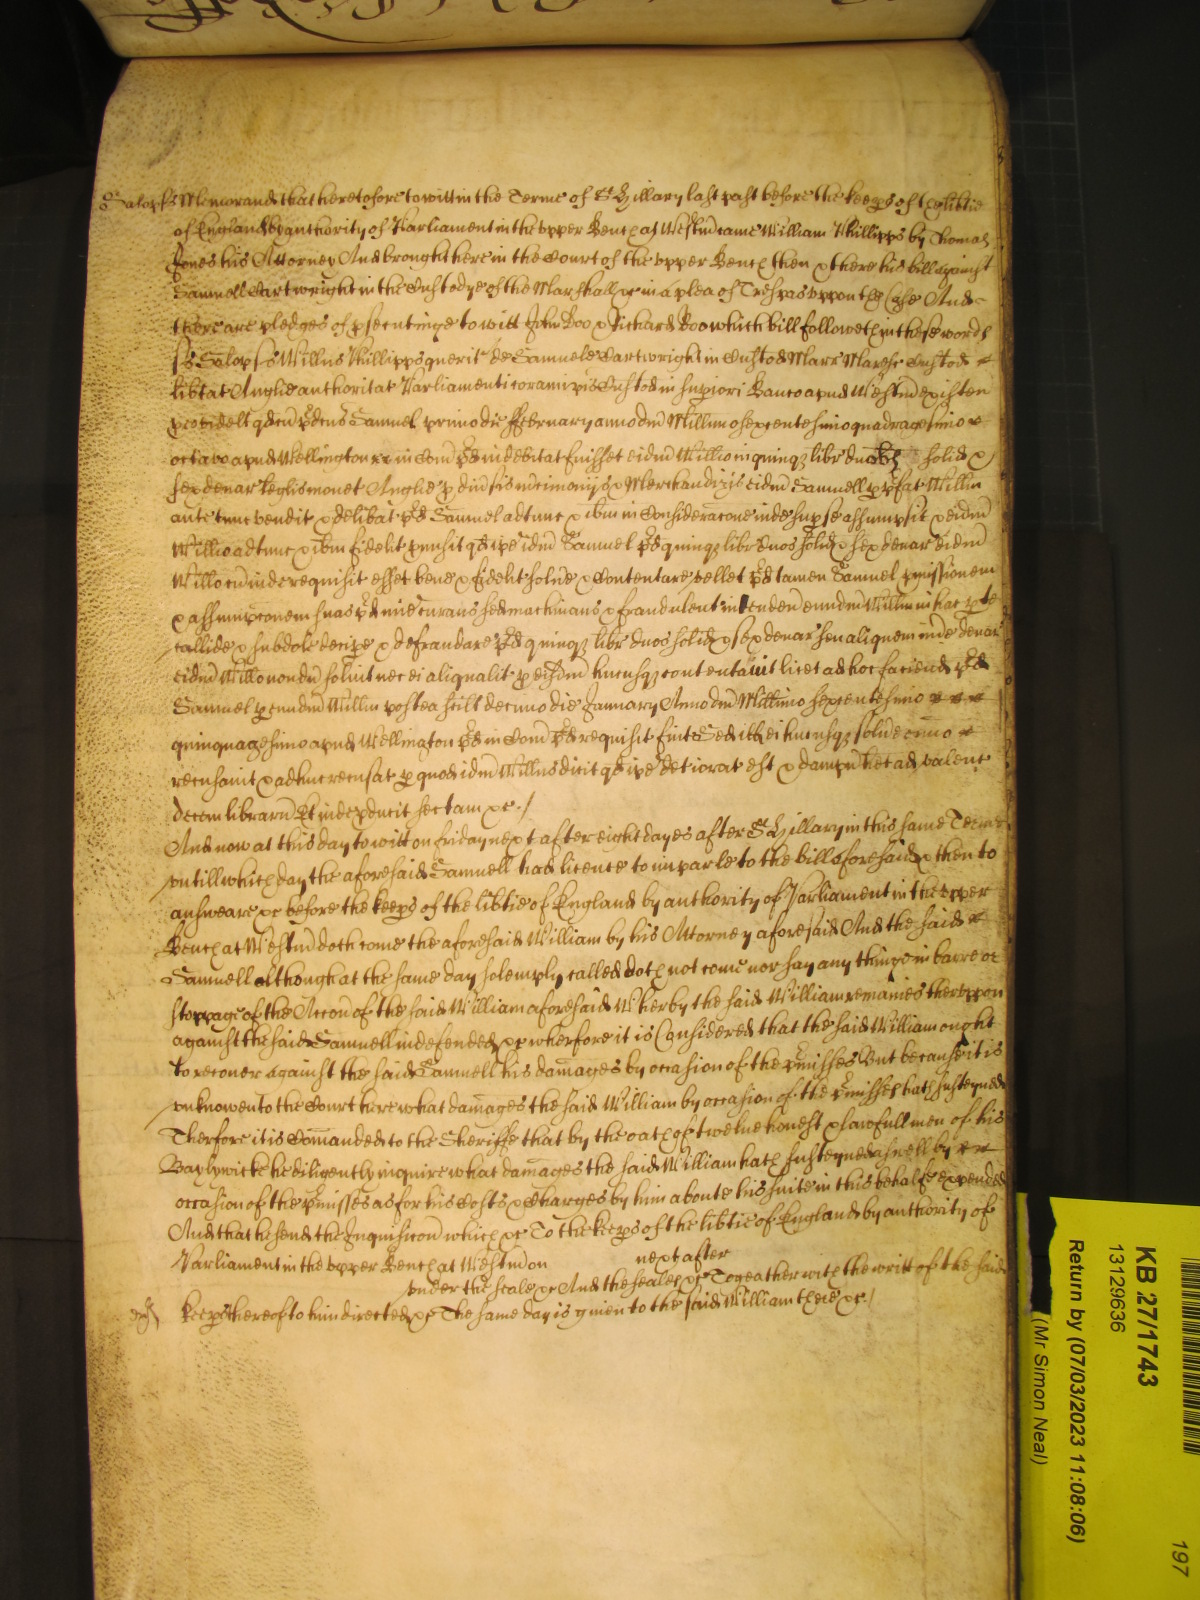 Salop ss Memorand that heretofore to witt in the Terme of St Hillary last past before the keeps of the libtie
of England by authority of Parliament in the upper Bench at Westm came William Phillipps by Thomas
Jones his Attorney And brought here in the Court of the upper Bench then & there his bill against
Samuell Cartwright in the Custodye of the Marshall &c in a plea of Trespas uppon the Case And
there are pledges of psecutinge to witt John Doo & Richard Roo which bill followeth in these words
ss Salop ss Willus Phillipps querit de Samuele Cartwright in Custod Marr Maresc Custod
libtat Anglie authoritat Parliamenti coram ipis Custod in supiori Banco apud Westm existen
p eo videlt qd cu pdcus Samuel primo die February anno dm Millimo sexcentesimo quadragesimo
octavo apud Wellington in Com pd indebitat fuisset eidm Willmo in quinq libr duobz solid &
sex denar legalis monet Anglie p divsis mcimonijs & Merchandizis eidm Samueli p pfat Willm
ante tunc vendit & delibat pd Samuel adtunc & ibm in Consideracone inde sup se assumpsit & eidm
Willmo adtunc & ibm fidelit pmisit qd ipe idm Samuel pd quinq libr duos solid & sex denar eidm
Willmo cu inde requisit esset bene & fidelit solve & Contentare vellet pd tamen Samuel pmissionem
& assumpconem suas pd minie curans sed machinans & fraudulent intenden eundm Willm in hac pte
callide & subdole decipe & defraudare pd quinq libr duos solid & sex denar seu aliquem inde denar
eidm Willmo nondu soluit nec ei aliqualit p eisdm hucusq contentavit licet ad hoc faciend pd
Samuel p eundm Willm postea scilt decimo die January Anno dm Millimo sexcentesimo
quinquagesimo apud Wellington pd in Com pd requisit fuit Sed ill ei hucusq solve omio
recusavit & adhuc recusat p quod idm Willus dicit qd ipe detiorat est & dampn het ad valenc
decem librar Et inde pducit sectam &c./
And now at this day to witt on friday next after eight dayes after St Hillary in this same Terme
untill which day the aforesaid Samuell had licence to imparle to the bill aforesaid & then to
answeare &c before the keeps of the libtie of England by authority of Parliament in the upper
Bench at Westm doth come the aforesaid William by his Attorney aforesaid And the said
Samuell although at the same day solemply called doth not come nor say any thinge in barre or
stoppage of the Accon of the said William aforesaid Wherby the said William remaines theruppon
against the said Samuell indefended &c wherfore it is Considered that the said William ought
to recover against the said Samuell his damages by occasion of the pmisses But because it is
unknowen to the Court here what damages the said William by occasion of the pmisses hath susteyned
Therfore it is Comanded to the Sheriffe that by the oath of twelve honest & lawfull men of his
Baylywicke he diligently inquire what damages the said William hath susteyned aswell by
occasion of the pmisses as for his Costs & Charges by him aboute his suite in this behalfe expended
And that he send the Inquisicon which &c To the keeps of the libtie of England by authority of
Parliament in the upper Bench at Westm on next after
under the seale &c And the seales &c Togeather with the writt of the said
keeps thereof to him directed &c The same day is given to the said William there &c./
KB 27/1743
13129636
Return by (07/03/2023 11:08:06)
(Mr Simon Neal)
197